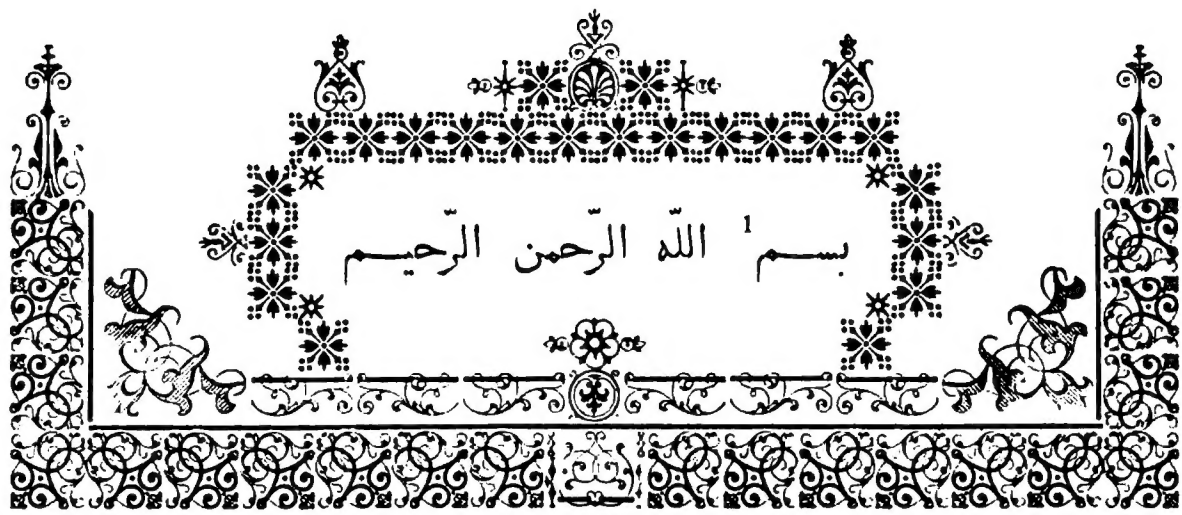 بسم¹ اللّه الرّحمن الرّحيم